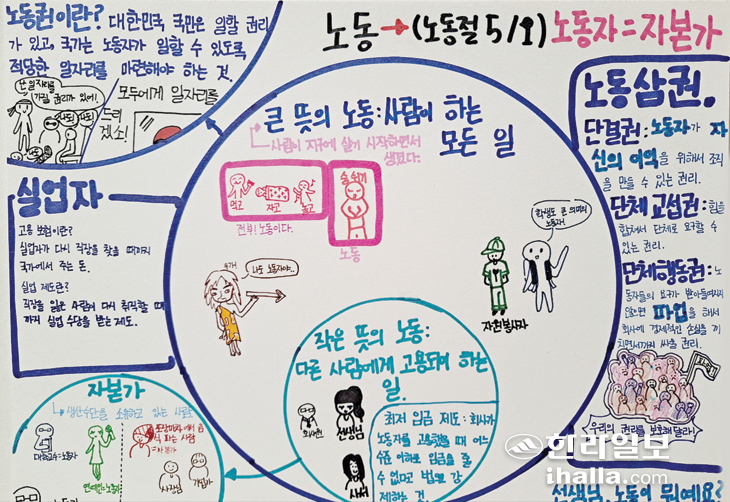 노동 → (노동절 5/1) 노동자 = 자본가
노동권이란? 대한민국 국민은 일할 권리
가 있고, 국가는 노동자가 일할 수 있도록
적당한 일자리를 마련해야 하는 것.
난 일자리를
가질 권리가 있어!
모두에게 일자리를
드리
겠소!
큰 뜻의 노동: 사람이 하는
모든 일
사람이 지구에 살기 시작하면서
생겼다.
먹고
자고
놀고
전부! 노동이다.
숨쉬기
노동
나도 노동자야..
학생도 큰 의미의
노동자!
자원봉사자
작은 뜻의 노동:
다른 사람에게 고용되어 하는
일.
회사원
선생님
사서
최저 임금 제도: 회사가
노동자를 고용했을 때 어느
수준 이하로 임금을 줄
수 없다고 법으로 강
제하는 것.
노동삼권.
단결권: 노동자가 자
신의 이익을 위해서 조직
을 만들 수 있는 권리.
단체 교섭권: 힘을
합쳐서 단체로 요구할 수
있는 권리.
단체행동권: 노
동자들의 요구가 받아들여지지
않으면 파업을 해서
회사에 경제적인 손실을 끼
치면서까지 싸울 권리.
우리의 권리를 보호해 달라!
실업자
고용 보험이란?
실업자가 다시 직장을 찾을 때까지
국가에서 주는 돈.
실업 제도란?
직장을 잃은 사람이 다시 취직할 때
까지 실업 수당을 받는 제도.
자본가
생산수단을 소유하고 있는 사람들
대통령=노동자
연예인=노동자
사장님
건물주
한라일보
ihalla.com
선생님, 노동이 뭐예요?